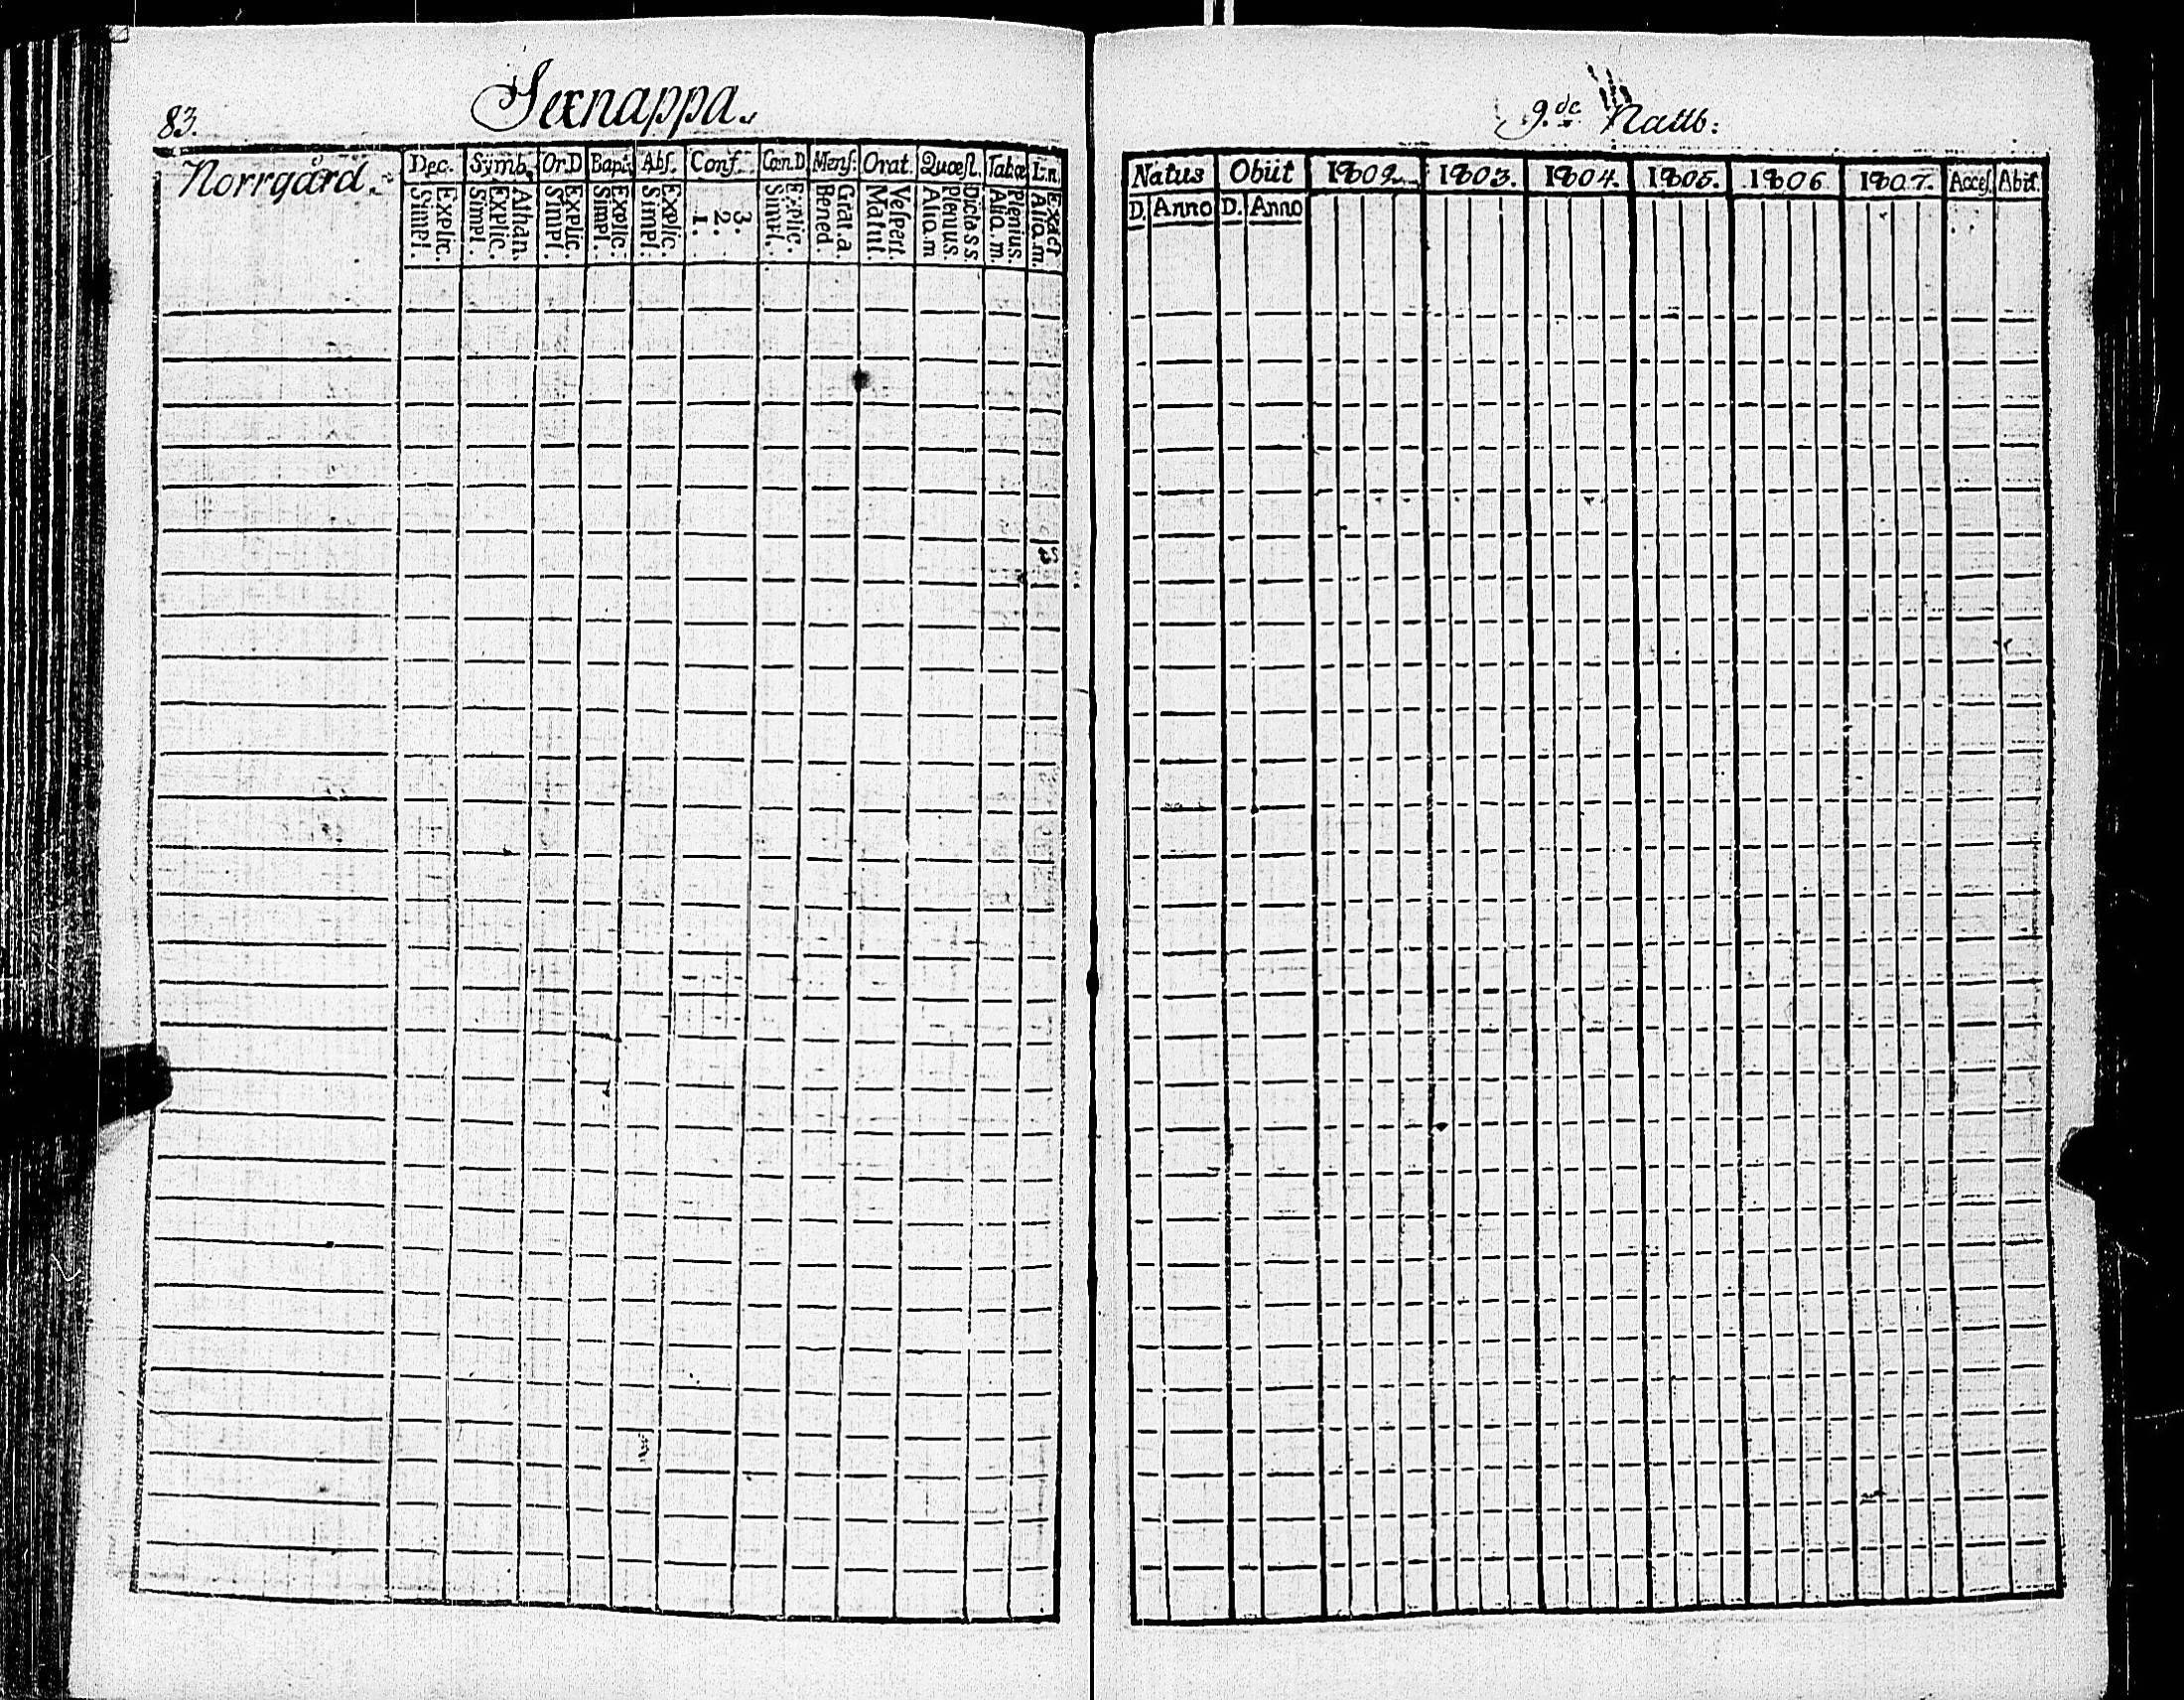 83.
Sexnappa.
Norrgård.
Dec. Symb. Or.D Bapt. Abſ. Conf. Cœn.D Menſ. Orat. Quœſt. Tabœ L:n.
Simpl. Explic. Simpl. Explic. Athan. Simpl. Explic. Simpl. Explic. Simpl. Explic. 1. 2. 3. Simpl. Explic. Bened. Grat.a. Matut. Veſpert. Aliq.m Plenius. Dictass. Aliq.m Plenius. Aliq.m. Exact
9.de Nattb:
Natus Obiit 1802. 1803. 1804. 1805. 1806 1807. Acceſ. Abit.
D. Anno D. Anno